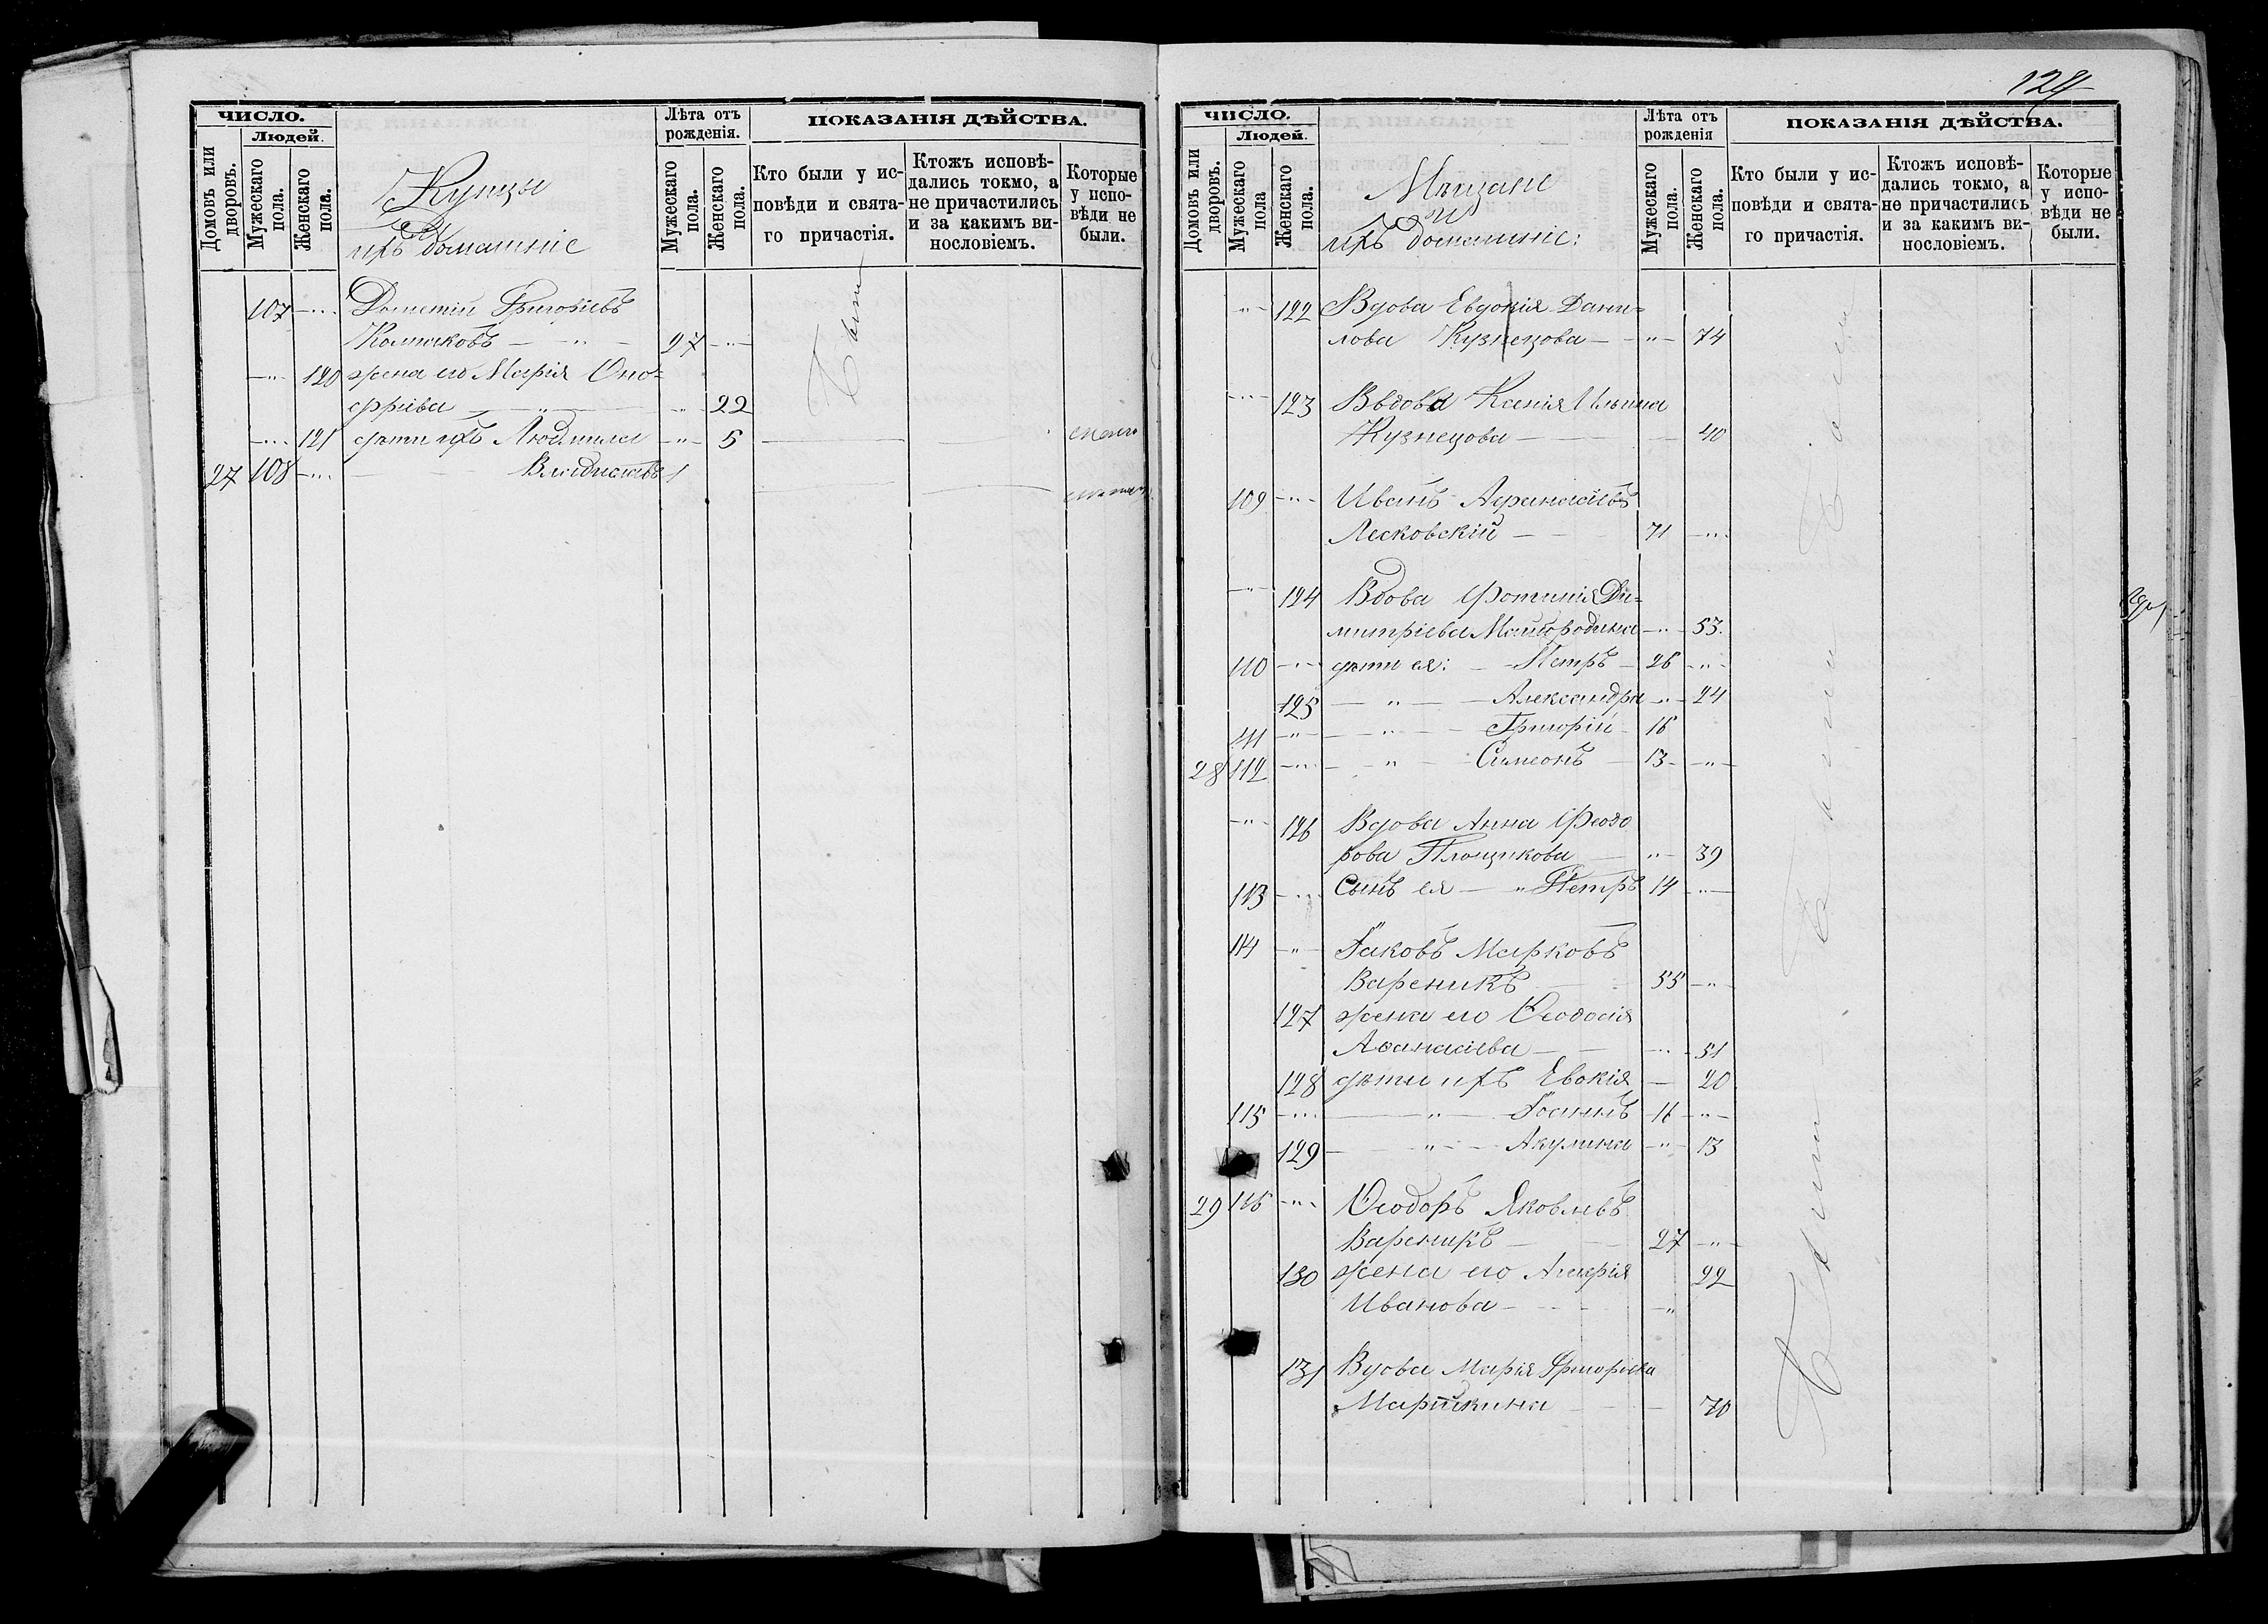 ЧИСЛО.
Людей.
Домовъ или дворовъ.
Мужескаго пола.
Женскаго пола.
Купцы
и
ихъ домашніе
Лѣта отъ рожденія.
Мужескаго пола.
Женскаго пола.
ПОКАЗАНІЯ ДѢЙСТВА.
Кто были у исповѣди и святаго причастія.
Ктожъ исповѣдались токмо, а не причастились и за какимъ винословіемъ.
Которые у исповѣди не были.
107 Дометій Григоріевъ
Колпаковъ — " — 27 — " —
— " — 120 жена его Марія Оно=
фріева — " — 22
— " — 121 дѣти ихъ Людмила — " — 5
27 108 — " — Владиславъ 1
Были
124
ЧИСЛО.
Людей.
Домовъ или дворовъ.
Мужескаго пола
Женскаго пола.
Мѣщане
и
ихъ домашніе:
Лѣта отъ рожденія
Мужескаго пола.
Женскаго пола.
ПОКАЗАНІЯ ДѢЙСТВА.
Кто были у исповѣди и святаго причастія.
Ктожъ исповѣдались токмо, а не причастились и за какимъ винословіемъ.
Которые у исповѣди не были.
— " — 122 Вдова Евдокія Дани=
лова Кузнецова — " — 74
— " — 123 Ввдова Ксенія Ильина
Кузнецова — 40
109 — " — Иванъ Афанасіевъ
Лесковскій — 71 — " —
— " — 124 Вдова Фотинія Ди=
митріева — " — 53
110 — " — дѣти ея: Петръ — 26 — " —
125 — " — Александра — " — 24
111 — " — Григорій 16
28 112 — " — Симеонъ — 13 — " —
— " — 126 Вдова Анна Феодо
рова Площикова — " — 39
113 — " — Сынъ ея — " Петръ 14 — " —
114 — " — Іаковъ Марковъ
Вареникъ 55 — " —
127 жена его Ѳеодосія
Аѳанасіева — " — 51
128 дѣти ихъ Евокія — 20
115 — " — Іоаннъ 16 — " —
129 — " — Акулина — " — 13
29 116 — " — Ѳеодоръ Яковлевъ
Вареникъ — 27 — " —
130 жена его Марія 22
Иванова — "
131 Вдова Марія Григоріева
70
Были
Были